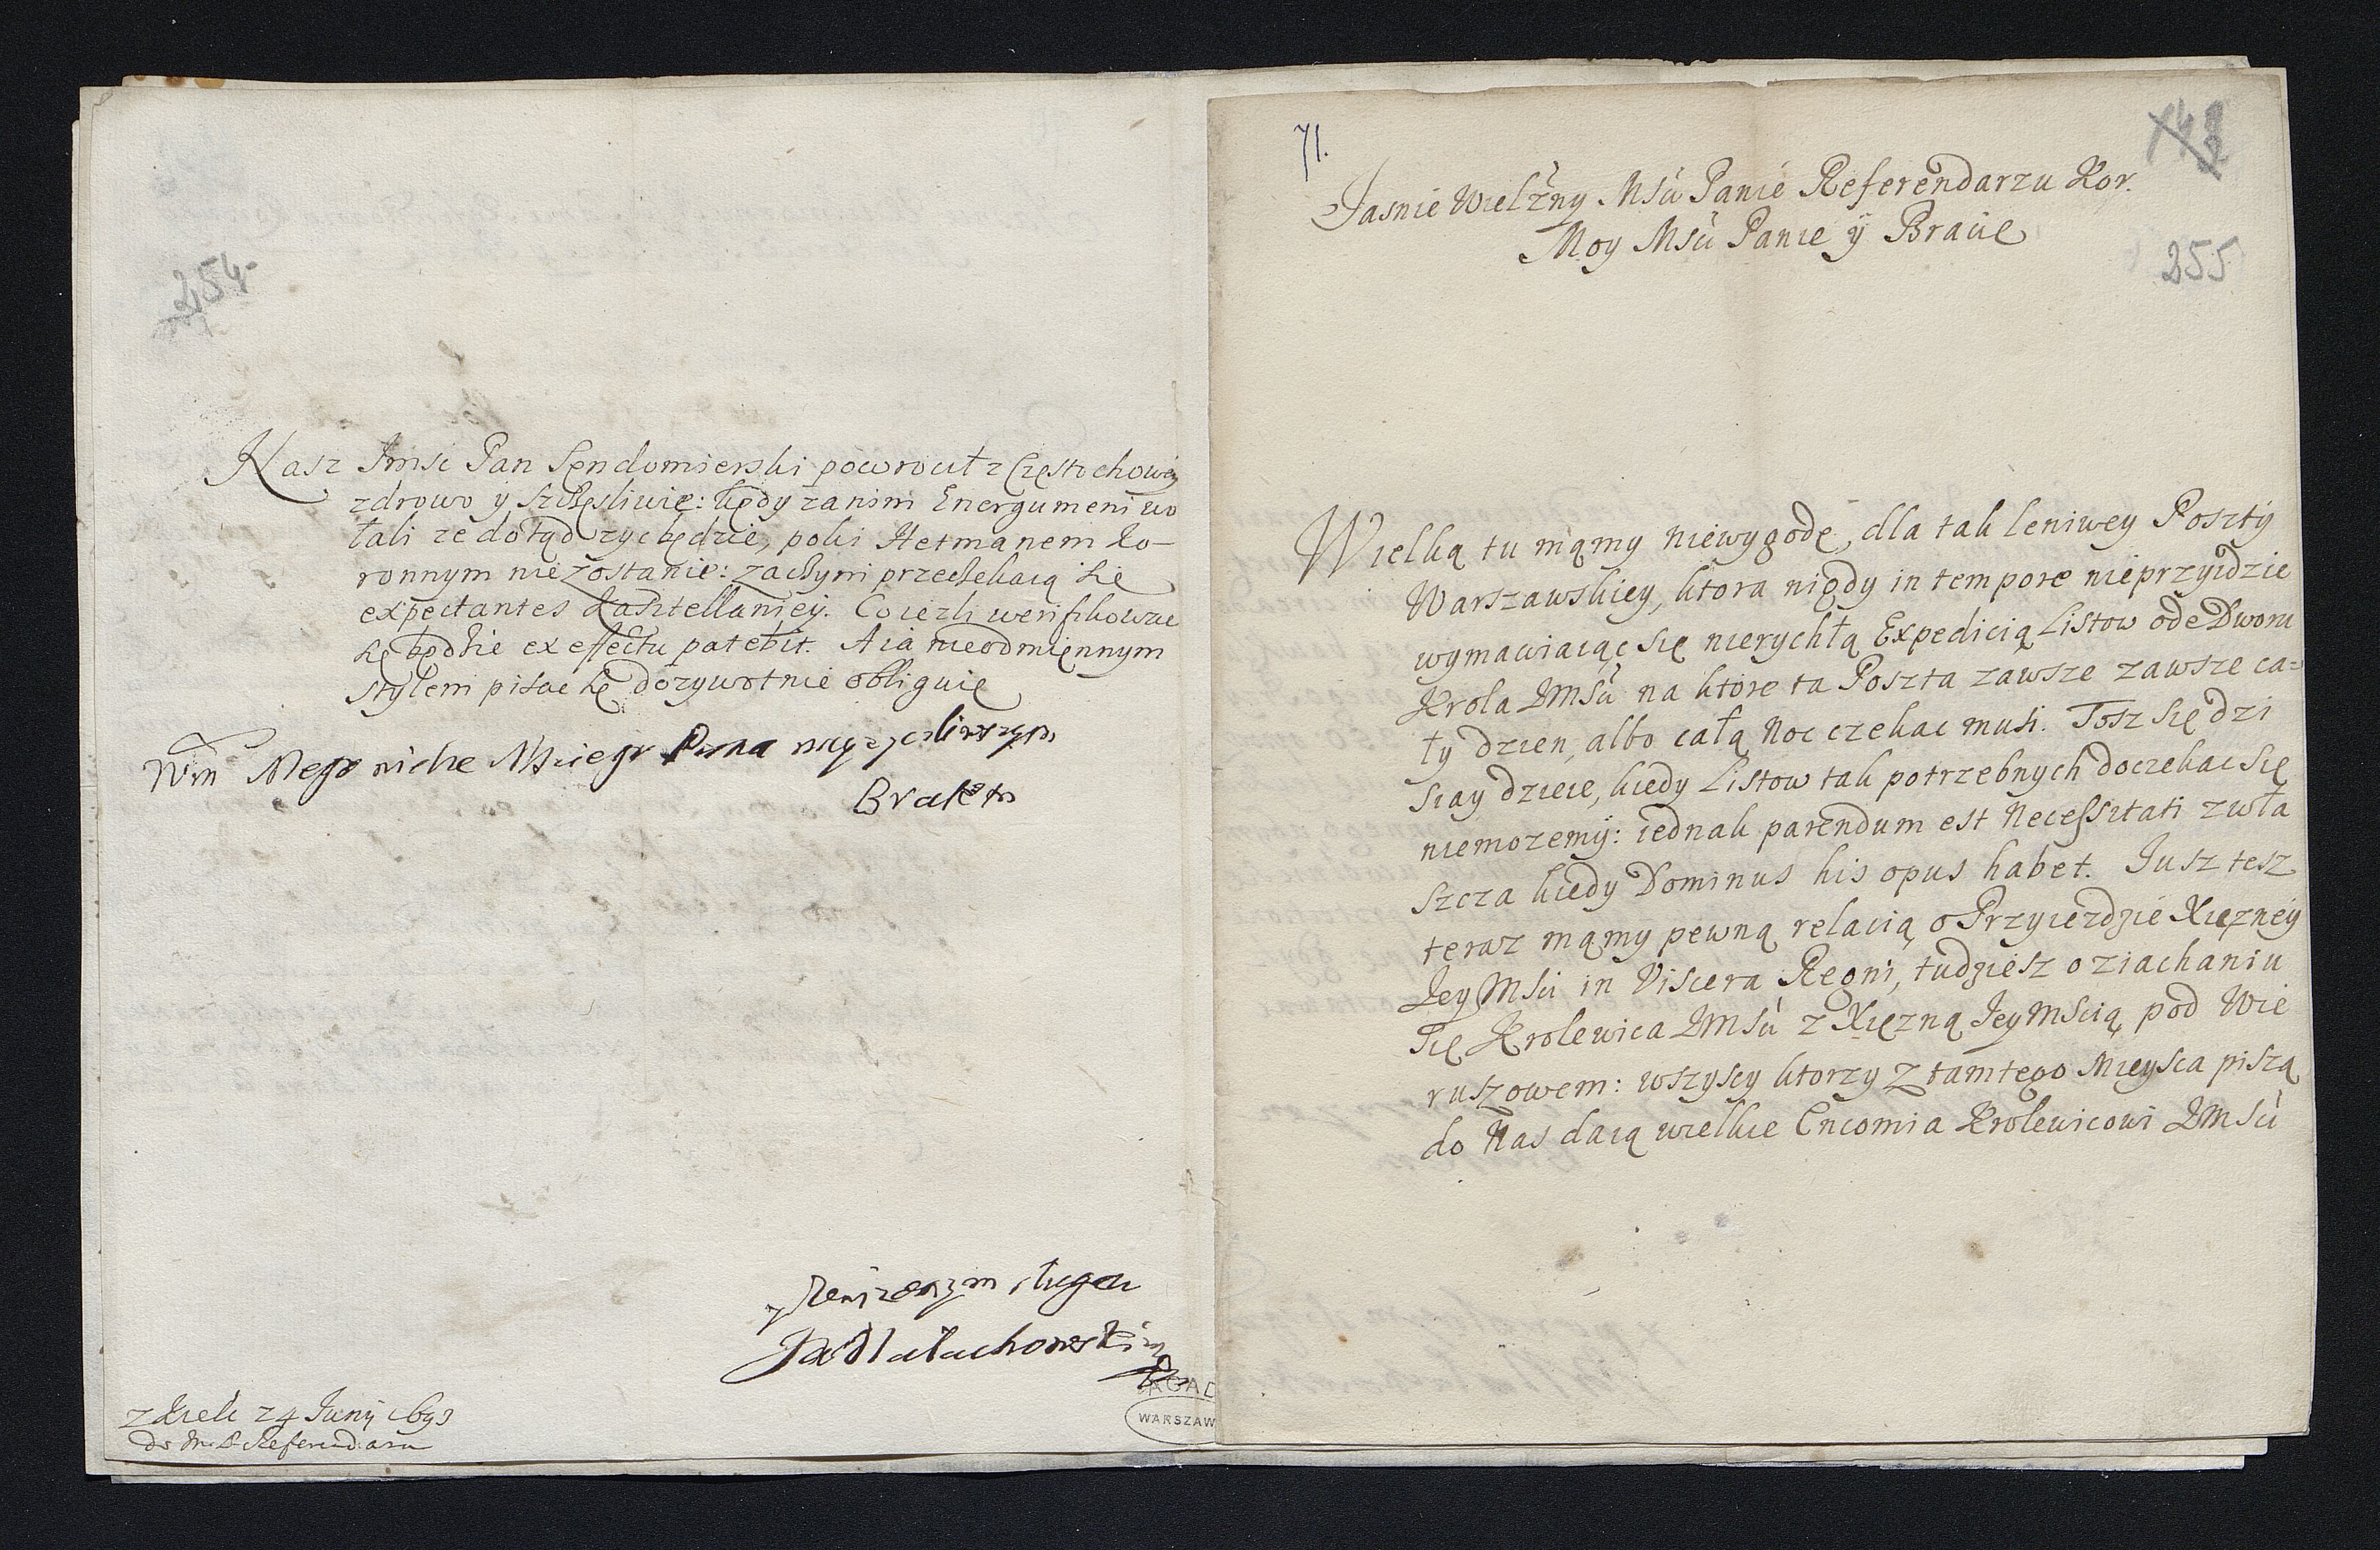 254
Nasz Imsc Pan Sendomierski powrocił z Częstochowÿ
zdrowo ÿ szczęsliwie: kędy za nim Energumeni wo
łali ze dotąd zyc będzie, poki Hetmanem Ko-
ronnym nie zostanie: zaczym przeczekaią się
expectantes Kasztellaniey. Co iezli werifikowac
się będzie ex effectu patebit. A ia nieodmięnnym
stylem pisac się dozywotnie obliguię
Wm Mego Msciego Pana nayzyczliwszym
Bratem
y sługą
JaMałachowskim
z Kielc 24 Junÿ 1693
do Referendarza
AGAD
WARSZAW
71.
255
Jasnie Wielżny Msci Panie Referendarzu Kor.
Moy Msci Panie ÿ Bracie
Wielką tu mąmy niewygodę, dla tak leniwey Posztÿ
Warszawskiey, ktora nigdy in tempore nieprzyidzie
wymawiaiąc się nierychłą Expedicią Listow ode Dworu
Krola JMSci na ktore ta Poszta zawsze zawsze ca=
ły dzien, albo całą Noc czekac musi. Tosz się dzi
siay dzieie, kiedy Listow tak potrzebnych doczekac się
niemozemÿ: iednak parendum est Necessitati zwła
szcza kiedy Dominus his opus habet. Jusz tesz
teraz mąmy pewną relacią o Przyiezdzie Xięzneÿ
Jey Msci in Viscera Regni, tudziesz o ziachaniu
się Krolewica JMSci z Xięzną JeyMscią pod Wie
ruszowem: wszyscy ktorzy z tamtego Mieysca piszą
do Nas daią wielkie Encomia Krolewicowi JMSci